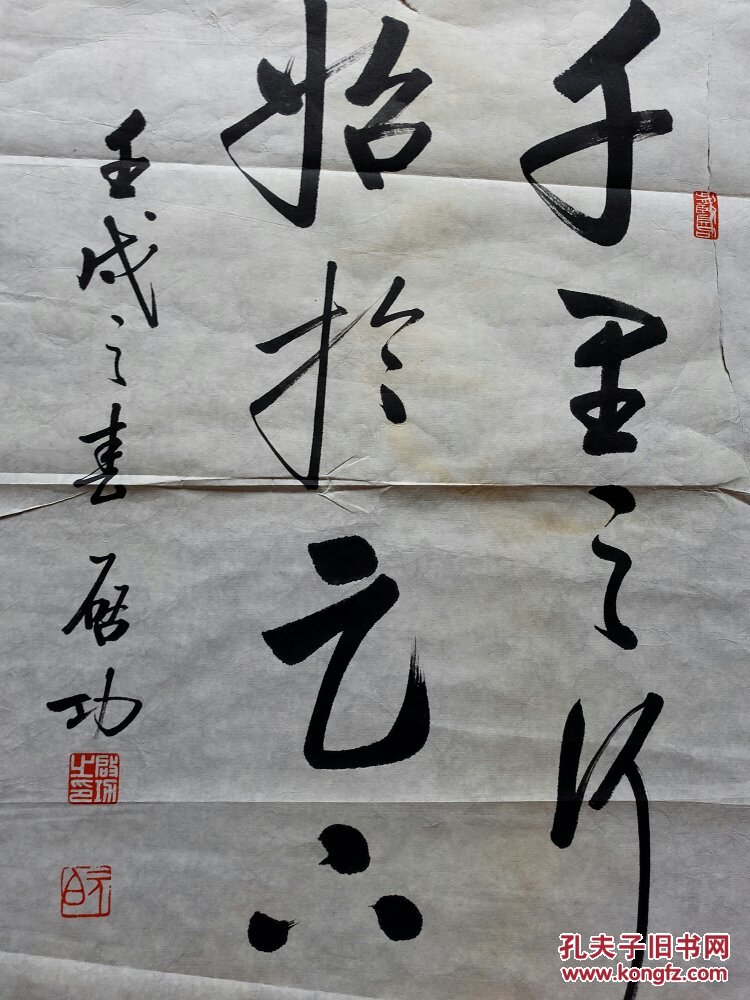 千里之行
始於足下
壬戌之春 啟功
啟功之印
元白
孔夫子旧书网
www.kongfz.com